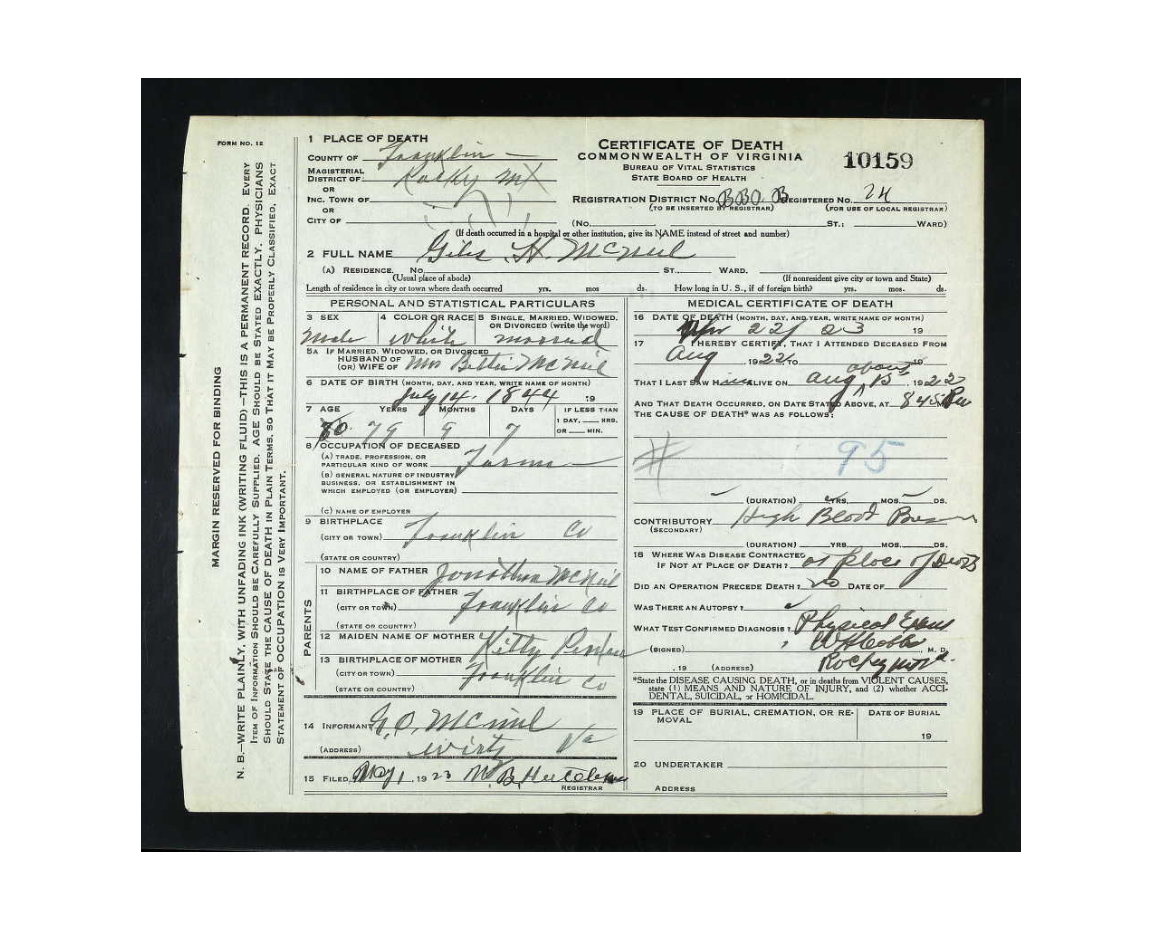 FORM NO. 12
MARGIN RESERVED FOR BINDING
N. B.—WRITE PLAINLY, WITH UNFADING INK (WRITING FLUID)—THIS IS A PERMANENT RECORD. EVERY
ITEM OF INFORMATION SHOULD BE CAREFULLY SUPPLIED. AGE SHOULD BE STATED EXACTLY. PHYSICIANS
SHOULD STATE THE CAUSE OF DEATH IN PLAIN TERMS, SO THAT IT MAY BE PROPERLY CLASSIFIED. EXACT
STATEMENT OF OCCUPATION IS VERY IMPORTANT.
1 PLACE OF DEATH
COUNTY OF Franklin
MAGISTERIAL
DISTRICT OF Rocky Mt
OR
INC. TOWN OF
OR
CITY OF
CERTIFICATE OF DEATH
COMMONWEALTH OF VIRGINIA
BUREAU OF VITAL STATISTICS
STATE BOARD OF HEALTH
10159
REGISTRATION DISTRICT No. REGISTERED No. 24
(TO BE INSERTED BY REGISTRAR) (FOR USE OF LOCAL REGISTRAR)
(No. ST.; WARD)
(If death occurred in a hospital or other institution, give its NAME instead of street and number)
2 FULL NAME Giles H. McNeil
(A) RESIDENCE. No. ST. WARD.
(Usual place of abode) (If nonresident give city or town and State)
Length of residence in city or town where death occurred yrs. mos ds. How long in U. S., if of foreign birth? yrs. mos. ds.
PERSONAL AND STATISTICAL PARTICULARS
3 SEX 4 COLOR OR RACE 5 SINGLE, MARRIED, WIDOWED,
OR DIVORCED (write the word)
Male white married
5A IF MARRIED, WIDOWED, OR DIVORCED
HUSBAND OF
(OR) WIFE OF Mrs Bettie McNeil
6 DATE OF BIRTH (MONTH, DAY, AND YEAR, WRITE NAME OF MONTH)
July 14. 1844 19
7 AGE YEARS MONTHS DAYS IF LESS THAN
1 DAY, HRS.
OR MIN.
80 79 9 7
8 OCCUPATION OF DECEASED
(A) TRADE, PROFESSION, OR
PARTICULAR KIND OF WORK
(B) GENERAL NATURE OF INDUSTRY
BUSINESS, OR ESTABLISHMENT IN
WHICH EMPLOYED (OR EMPLOYER)
(C) NAME OF EMPLOYER
9 BIRTHPLACE
(CITY OR TOWN) Franklin Co
(STATE OR COUNTRY)
PARENTS
10 NAME OF FATHER Jonathan McNeil
11 BIRTHPLACE OF FATHER
(CITY OR TOWN) Franklin Co
(STATE OR COUNTRY)
12 MAIDEN NAME OF MOTHER Kitty
13 BIRTHPLACE OF MOTHER
(CITY OR TOWN) Franklin Co
(STATE OR COUNTRY)
14 INFORMANT G. O. McNeil
(ADDRESS) Wirtz Va
15 FILED May 1, 1923
REGISTRAR
MEDICAL CERTIFICATE OF DEATH
16 DATE OF DEATH (MONTH, DAY, AND YEAR, WRITE NAME OF MONTH)
Apr 22 / 23 19
17 I HEREBY CERTIFY, THAT I ATTENDED DECEASED FROM
Aug 1922 TO 19
about
THAT I LAST SAW him ALIVE ON Aug 15, 1922
AND THAT DEATH OCCURRED, ON DATE STATED ABOVE, AT 845
THE CAUSE OF DEATH* WAS AS FOLLOWS:
# 95
(DURATION) YRS. MOS. DS.
CONTRIBUTORY High Blood
(SECONDARY)
(DURATION) YRS. MOS. DS.
18 WHERE WAS DISEASE CONTRACTED
IF NOT AT PLACE OF DEATH? at place of Death
DID AN OPERATION PRECEDE DEATH? no DATE OF
WAS THERE AN AUTOPSY?
WHAT TEST CONFIRMED DIAGNOSIS? Physical Exam
(SIGNED) M. D.
, 19 (ADDRESS)
*State the DISEASE CAUSING DEATH, or in deaths from VIOLENT CAUSES,
state (1) MEANS AND NATURE OF INJURY, and (2) whether ACCI-
DENTAL, SUICIDAL, or HOMICIDAL.
19 PLACE OF BURIAL, CREMATION, OR RE-
MOVAL
DATE OF BURIAL
19
20 UNDERTAKER
ADDRESS